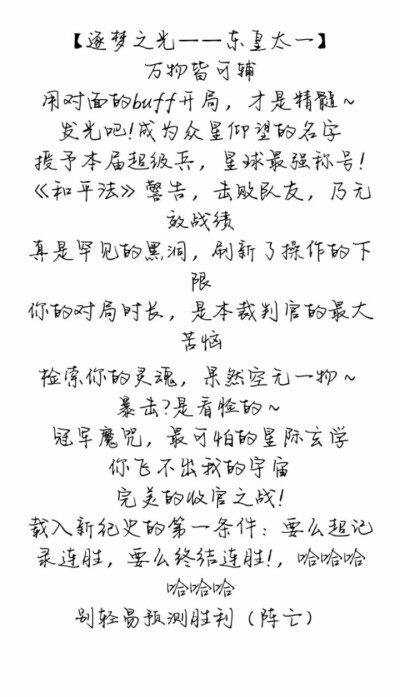 【逐梦之光——东皇太一】
万物皆可辅
用对面的buff开局，才是精髓~
发光吧!成为众星仰望的名字
授予本届超级兵，星球最强称号!
《和平法》警告，击败队友，乃无
效战绩
真是罕见的黑洞，刷新了操作的下
限
你的对局时长，是本裁判官的最大
苦恼
检索你的灵魂，果然空无一物~
暴击?是看脸的~
冠军魔咒，最可怕的星际玄学
你飞不出我的宇宙
完美的收官之战!
载入新纪史的第一条件：要么超记
录连胜，要么终结连胜!，哈哈哈
哈哈哈
别轻易预测胜利（阵亡）